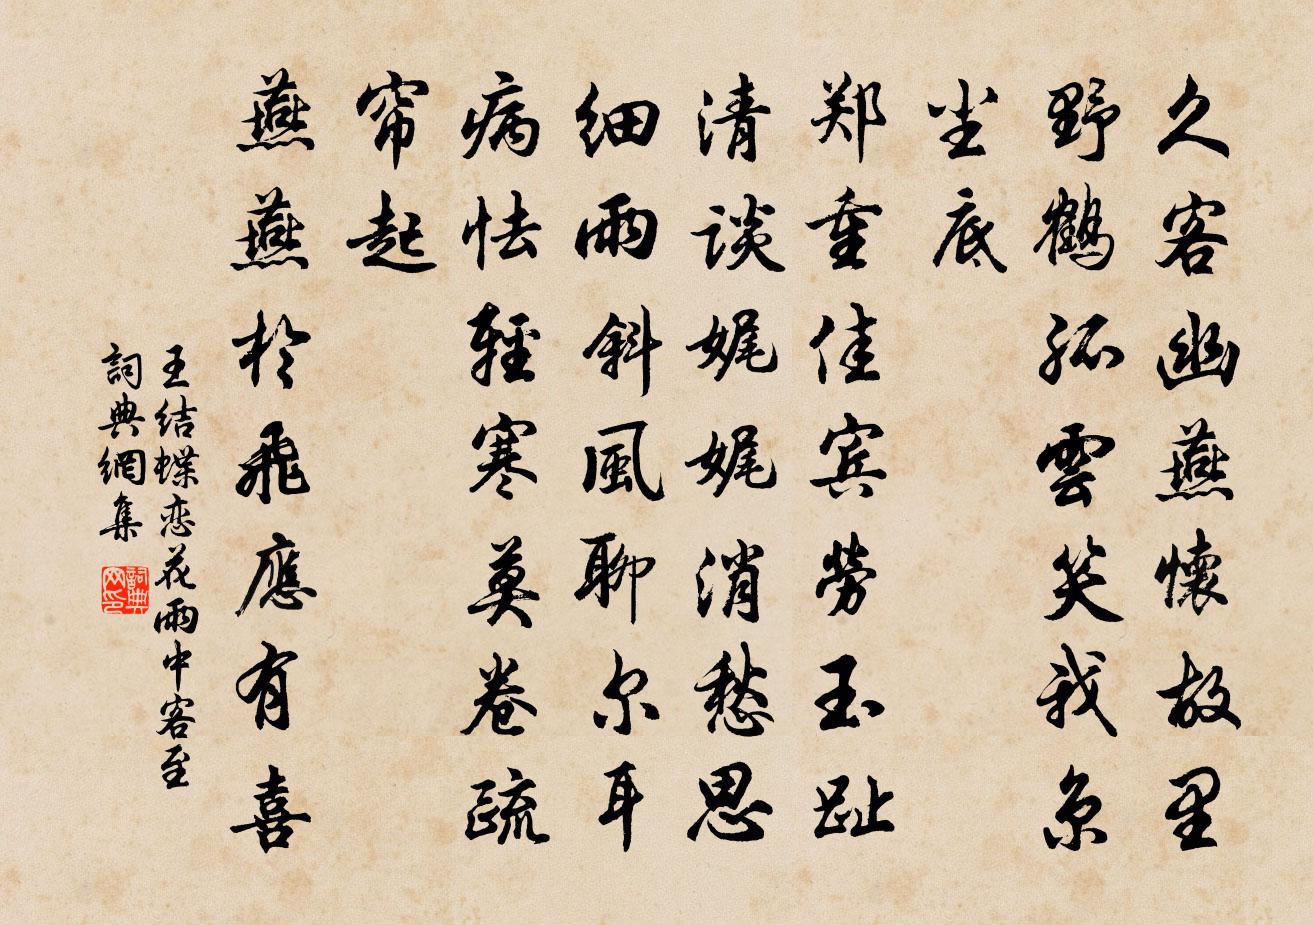 久客幽燕懷故里
野鶴孤雲笑我京
尘底
郑重佳宾劳玉趾
清谈娓娓消愁思
细雨斜風聊尔耳
病怯輕寒莫卷疏
帘起
燕燕於飛應有喜
王结蝶恋花雨中客至
詞典網集
詞典
网印